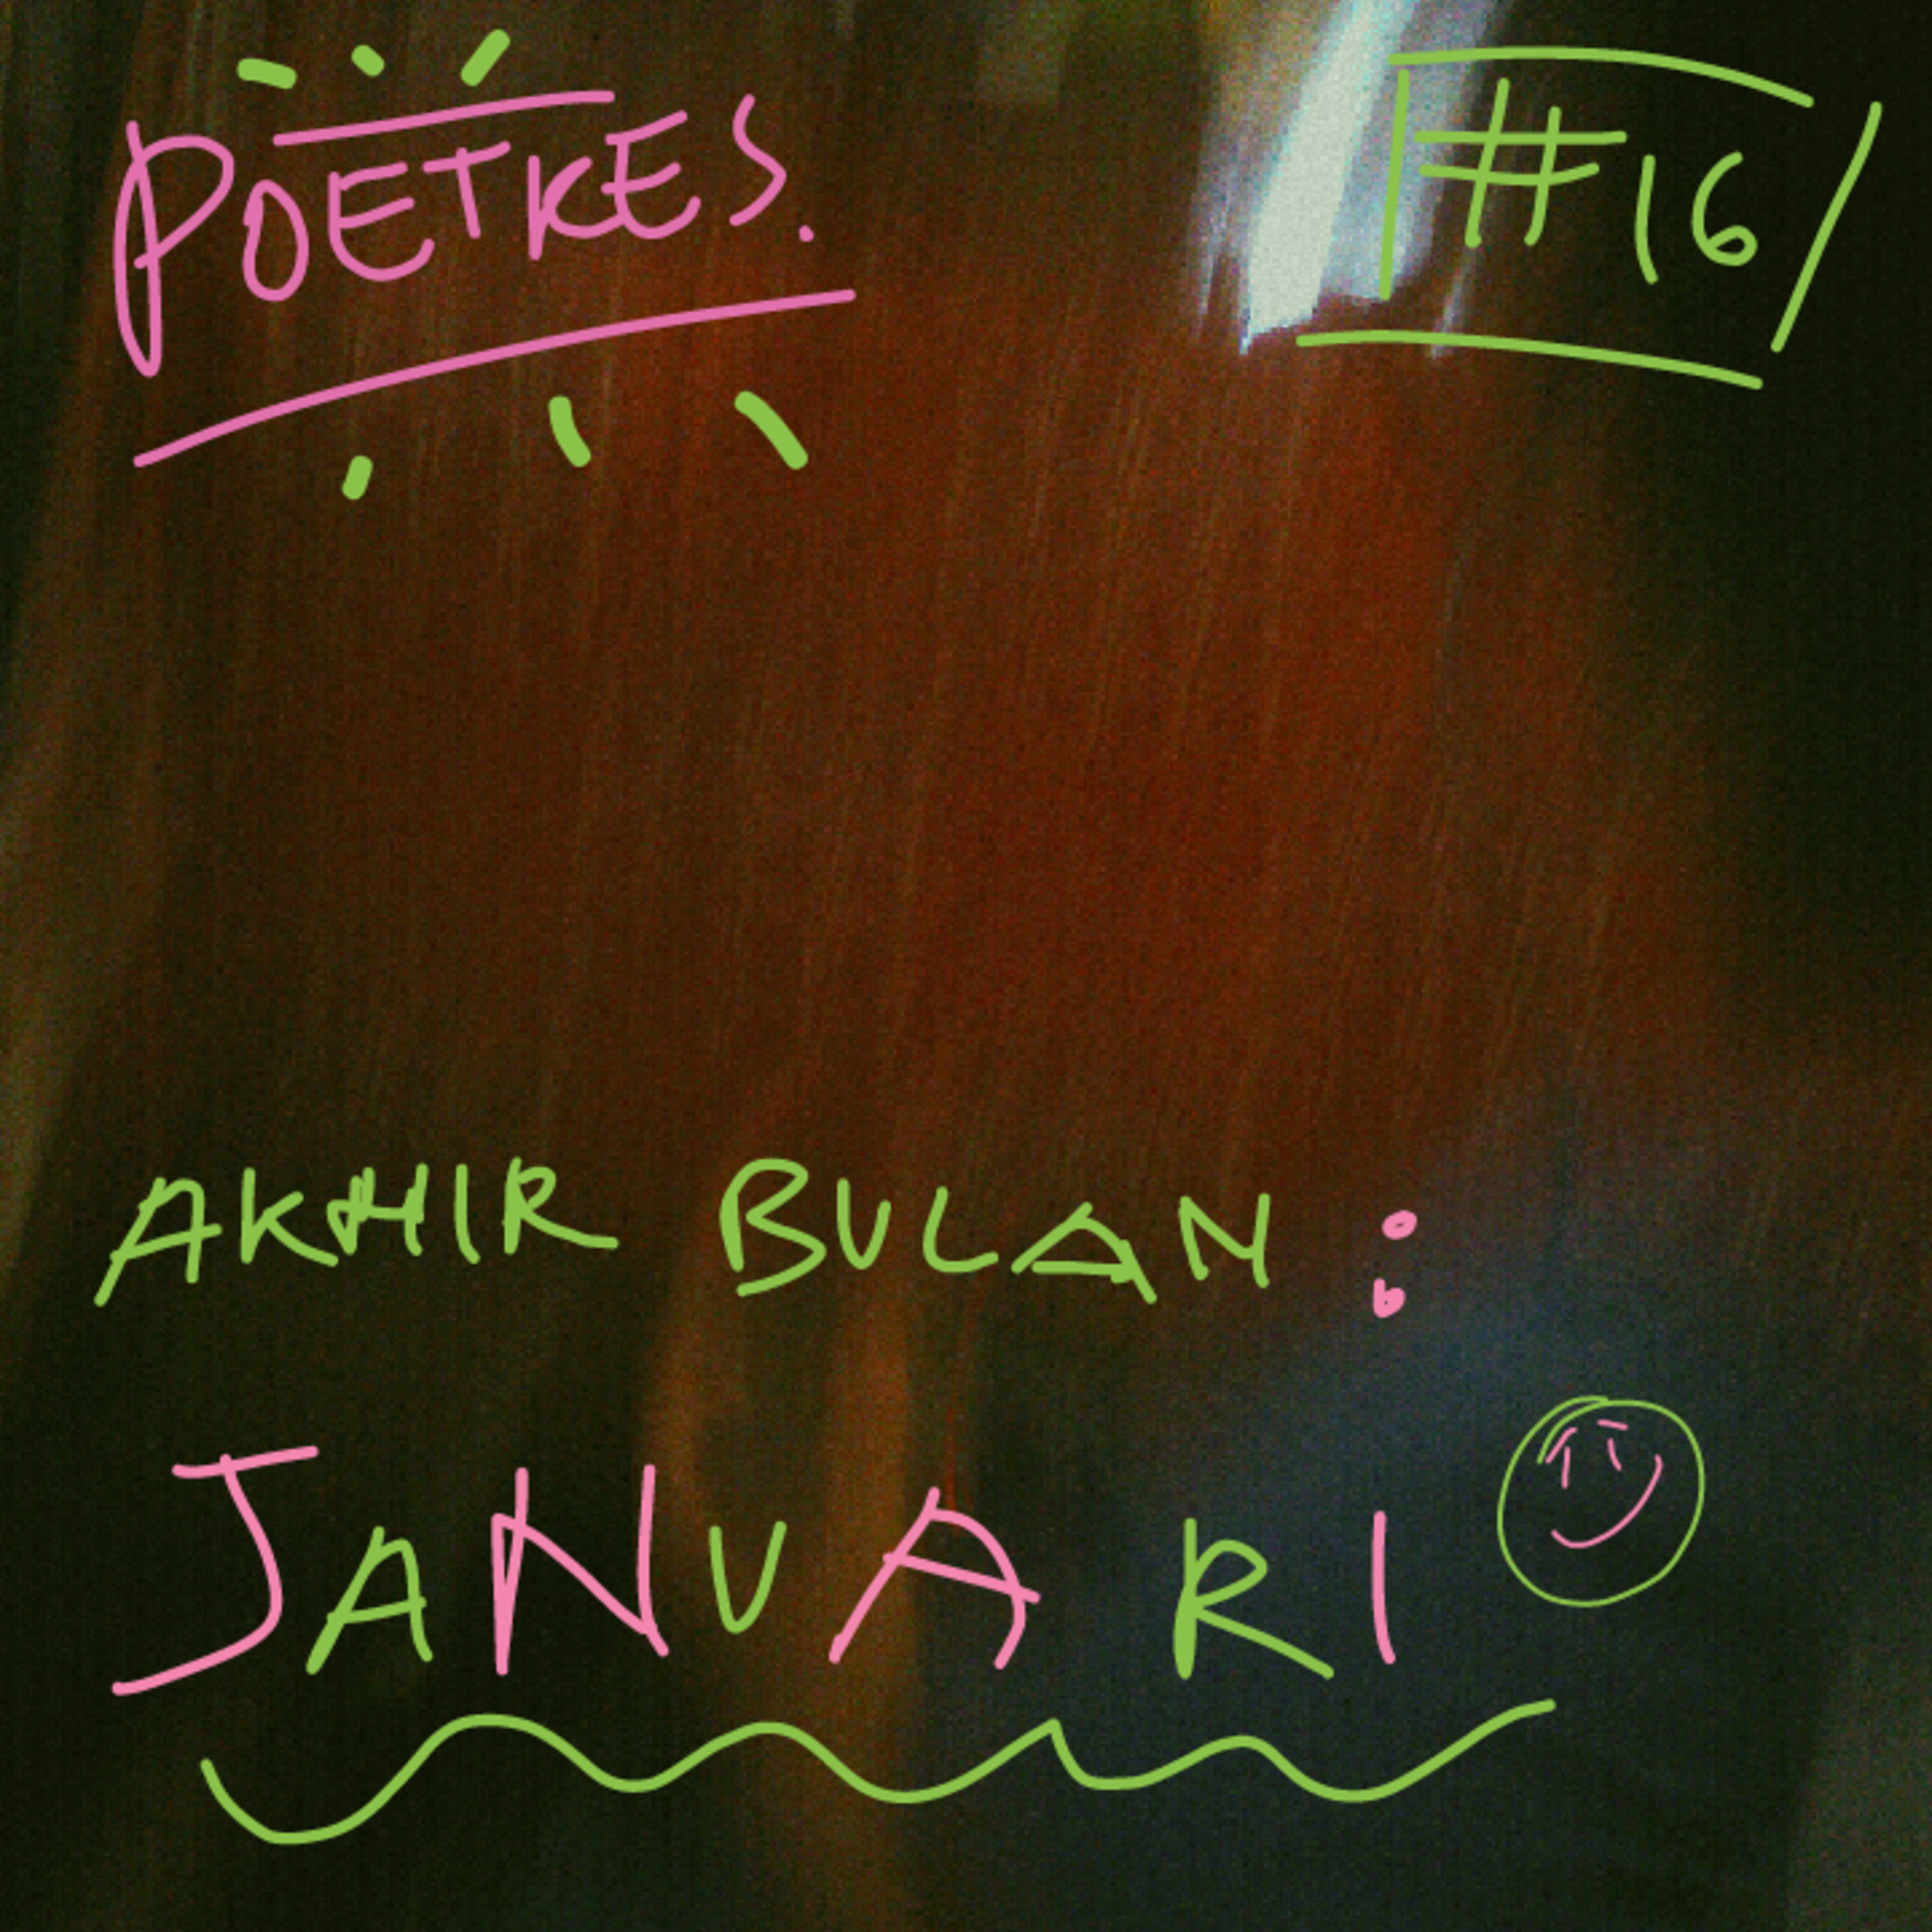 POETKES.
#16
AKHIR BULAN :
JANUARI